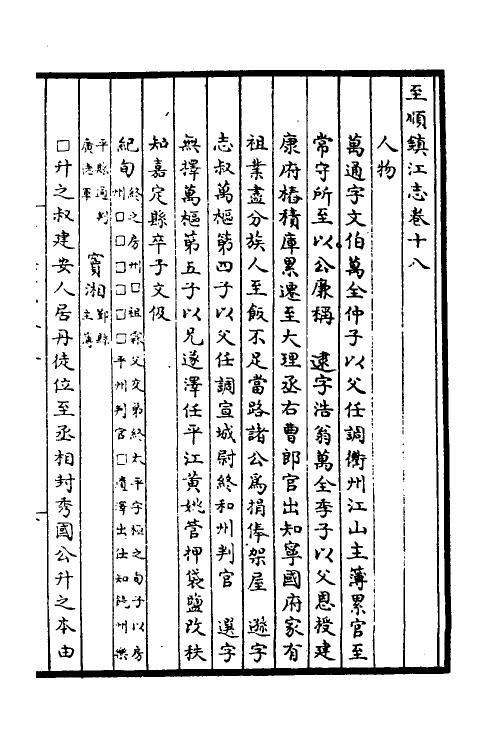 至順鎮江志卷十八
人物
萬通字文伯萬全仲子以父任調衢州江山主薄累官至
常守所至以公廉稱　逮字浩翁萬全季子以父恩授建
康府樁積庫累遷至大理丞右曹郎官出知寧國府家有
祖業盡分族人至飯不足當路諸公為捐俸架屋　遜字
志叔萬樞第四子以父任調宣城尉終和州判官　選字
無擇萬樞第五子以兄遂澤任平江黃姚管押袋鹽改秩
知嘉定縣卒子文伋
紀甸終之房州□祖霖父交弟終太平守極之甸子以房
州□□□□□□平州判官□遺澤出仕知饒州樂
平縣通判
廣德軍　竇湘鄞縣
主簿
□升之叔建安人居丹徒位至丞相封秀國公升之本由